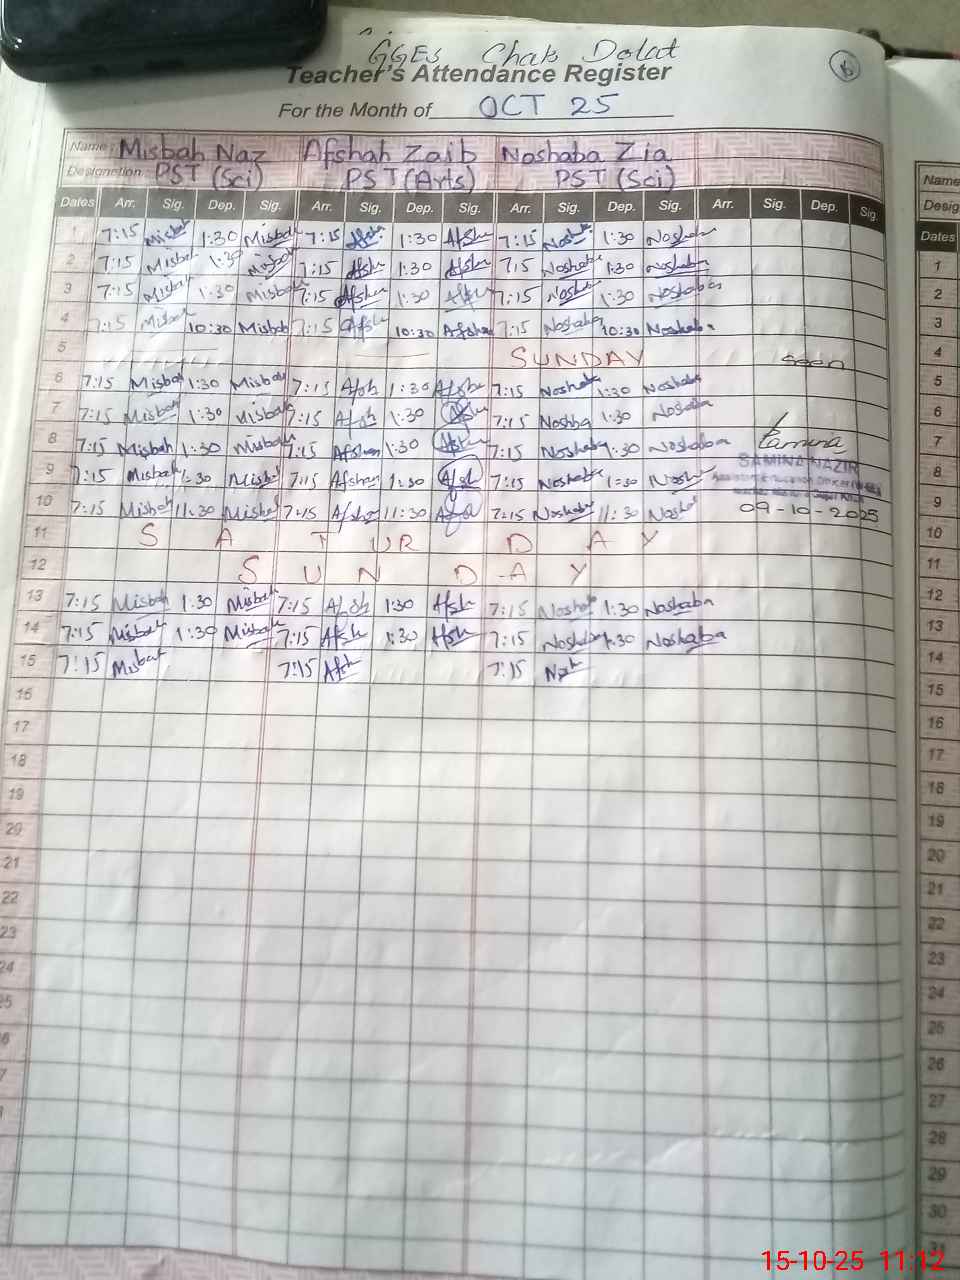 GGES Chak Dolat
Teacher's Attendance Register
For the Month of OCT 25
Name: Misbah Naz Afshah Zaib Noshaba Zia
Designation: PST (Sci) PST (Arts) PST (Sci)
Dates Arr. Sig. Dep. Sig. Arr. Sig. Dep. Sig. Arr. Sig. Dep. Sig. Arr. Sig. Dep. Sig.
1 7:15 Misbah 1:30 Misbah 7:15 Afsh 1:30 Afsh 7:15 Nosh 1:30 Noshaba
2 7:15 Misbah 1:30 Misbah 7:15 Afsh 1:30 Afsh 7:15 Noshaba 1:30 Noshaba
3 7:15 Misbah 1:30 Misbah 7:15 Afsha 1:30 Afsh 7:15 Nosha 1:30 Noshaba
4 7:15 Misbah 10:30 Misbah 7:15 Afsh 10:30 Afsha 7:15 Noshaba 10:30 Noshaba
5 SUNDAY seen
6 7:15 Misbah 1:30 Misbah 7:15 Afsh 1:30 Afsha 7:15 Noshaba 1:30 Noshaba
7 7:15 Misbah 1:30 Misbah 7:15 Afsh 1:30 Afsh 7:15 Noshba 1:30 Noshaba
8 7:15 Misbah 1:30 Misbah 7:15 Afshan 1:30 Afsh 7:15 Noshaba 1:30 Noshaba
SAMINA NAZIR
9 7:15 Misbah 1:30 Misbah 7:15 Afshan 1:30 Afsh 7:15 Noshaba 1:30 Nosh
10 7:15 Misbah 11:30 Misbah 7:15 Afsha 11:30 Afsh 7:15 Noshaba 11:30 Nosha 09-10-2025
11 SATURDAY
12 SUNDAY
13 7:15 Misbah 1:30 Misbah 7:15 Afsh 1:30 Afsh 7:15 Noshab 1:30 Noshaba
14 7:15 Misbah 1:30 Misbah 7:15 Afsh 1:30 Afsh 7:15 Noshaba 1:30 Noshaba
15 7:15 Misbah 7:15 Afsh 7:15 Nosh
16
17
18
19
20
21
22
23
24
Name
Desig
Dates
1
2
3
4
5
6
7
8
9
10
11
12
13
14
15
16
17
18
19
20
21
22
23
24
25
26
27
28
29
30
31
15-10-25 11:12